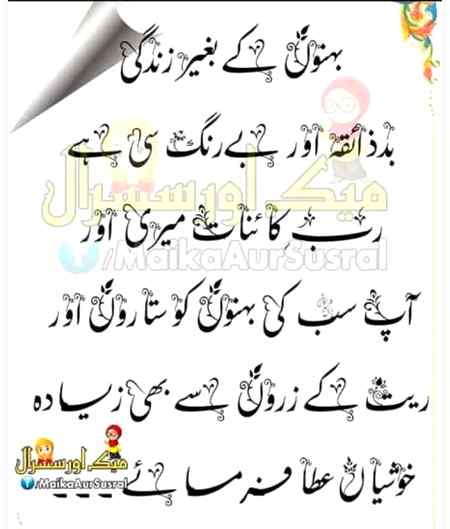 بہنوں کے بغیر زندگی
بدذائقہ اور بے رنگ سی ہے
میکہ اور سسرال
رب کائنات میری اور
f/MaikaAurSusral
آپ سب کی بہنوں کو ستاروں اور
ریت کے زروں سے بھی زیادہ
میکہ اور سسرال
f/MaikaAurSusral
خوشیاں عطا فرمائے۔۔۔۔